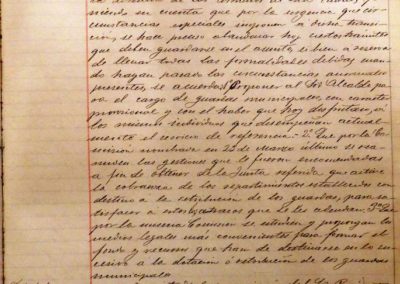 niendo en cuenta que por la urgencia que cir-
cunstancias especiales imponen a dicha transi-
ción, se hace preciso abandonar hoy ciertos trámites
que deben guardarse en el asunto, si bien a reserva
de llenar todas las formalidades debidas cuan-
do hayan pasado las circunstancias anormales
presentes, se acuerda: Proponer al Sor Alcalde
para el cargo de guardias municipales, con caracter
provisional y con el haber que hoy disfrutan, a
los mismos individuos que desempeñan actual-
mente el servicio de referencia. 2º Que por la Co-
misión nombrada en 22 de Marzo último se rea-
nuden las gestiones que le fueron encomendadas
a fin de obtener de la Junta referida que active
la cobranza de los repartimientos establecidos con
destino a la retribución de los guardas, para sa-
tisfacer a estos, atrasos que se les adeudan. 3º Que
por la misma Comision se estudien y propongan los
medios legales mas convenientes para formar el
fondo y recursos que han de destinarse en lo su-
cesivo a la dotación ó retribución de los guardas
municipales